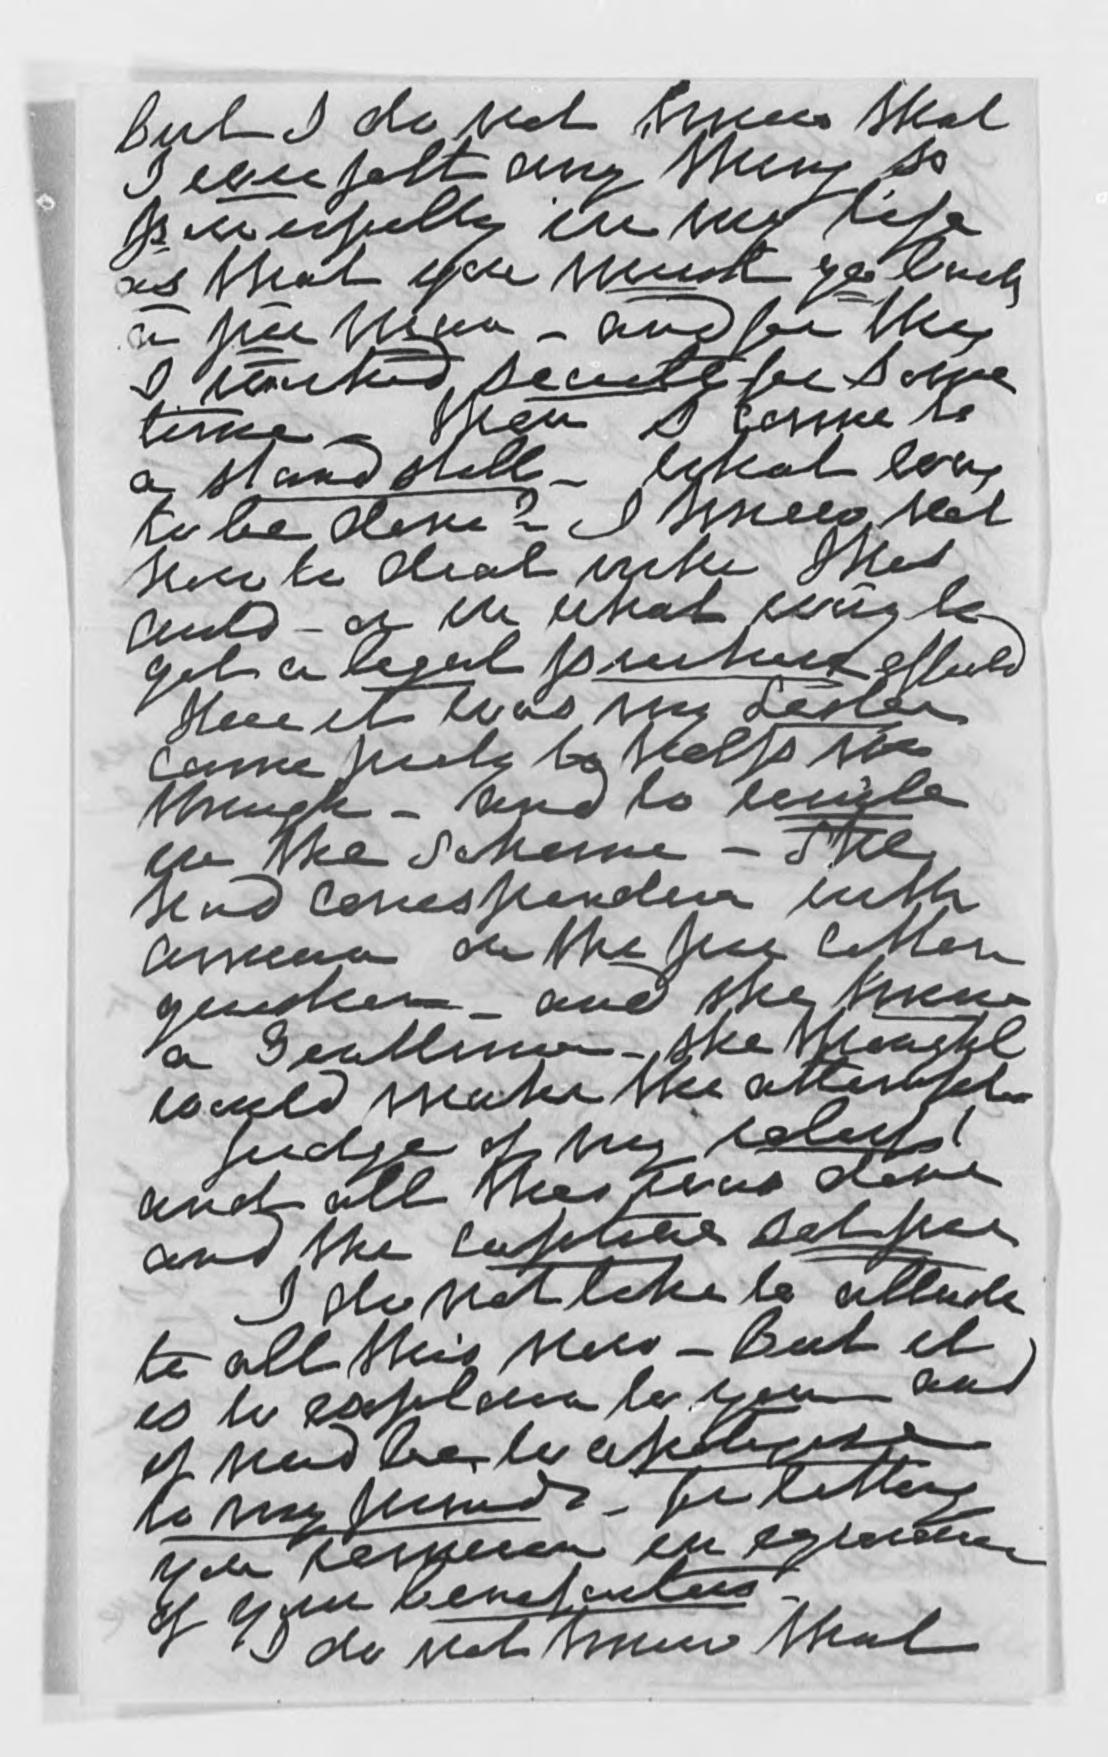 But I do not know that
I ever felt any thing so
powerfully in my life
as that you must go back
a free man - and for this
I worked secretly for some
time - Then I came to
a stand still - What was
to be done? - I knew not
how to deal with this
and - or in what way to
get a legal purchase effected
Here it was my Sister
came freely to help me
through - and to unite
in the scheme - She
had correspondence with
America on the free Cotton
question - and she knew
a Gentleman - she thought
would make the attempt -
Judge of my relief!
and all this was done
and the captive set free
I do not like to allude
to all this now - But it
is to explain to you and
if need be, to apologise
to my friends - for letting
you remain in ignorance
of your benefactors -
I do not know that